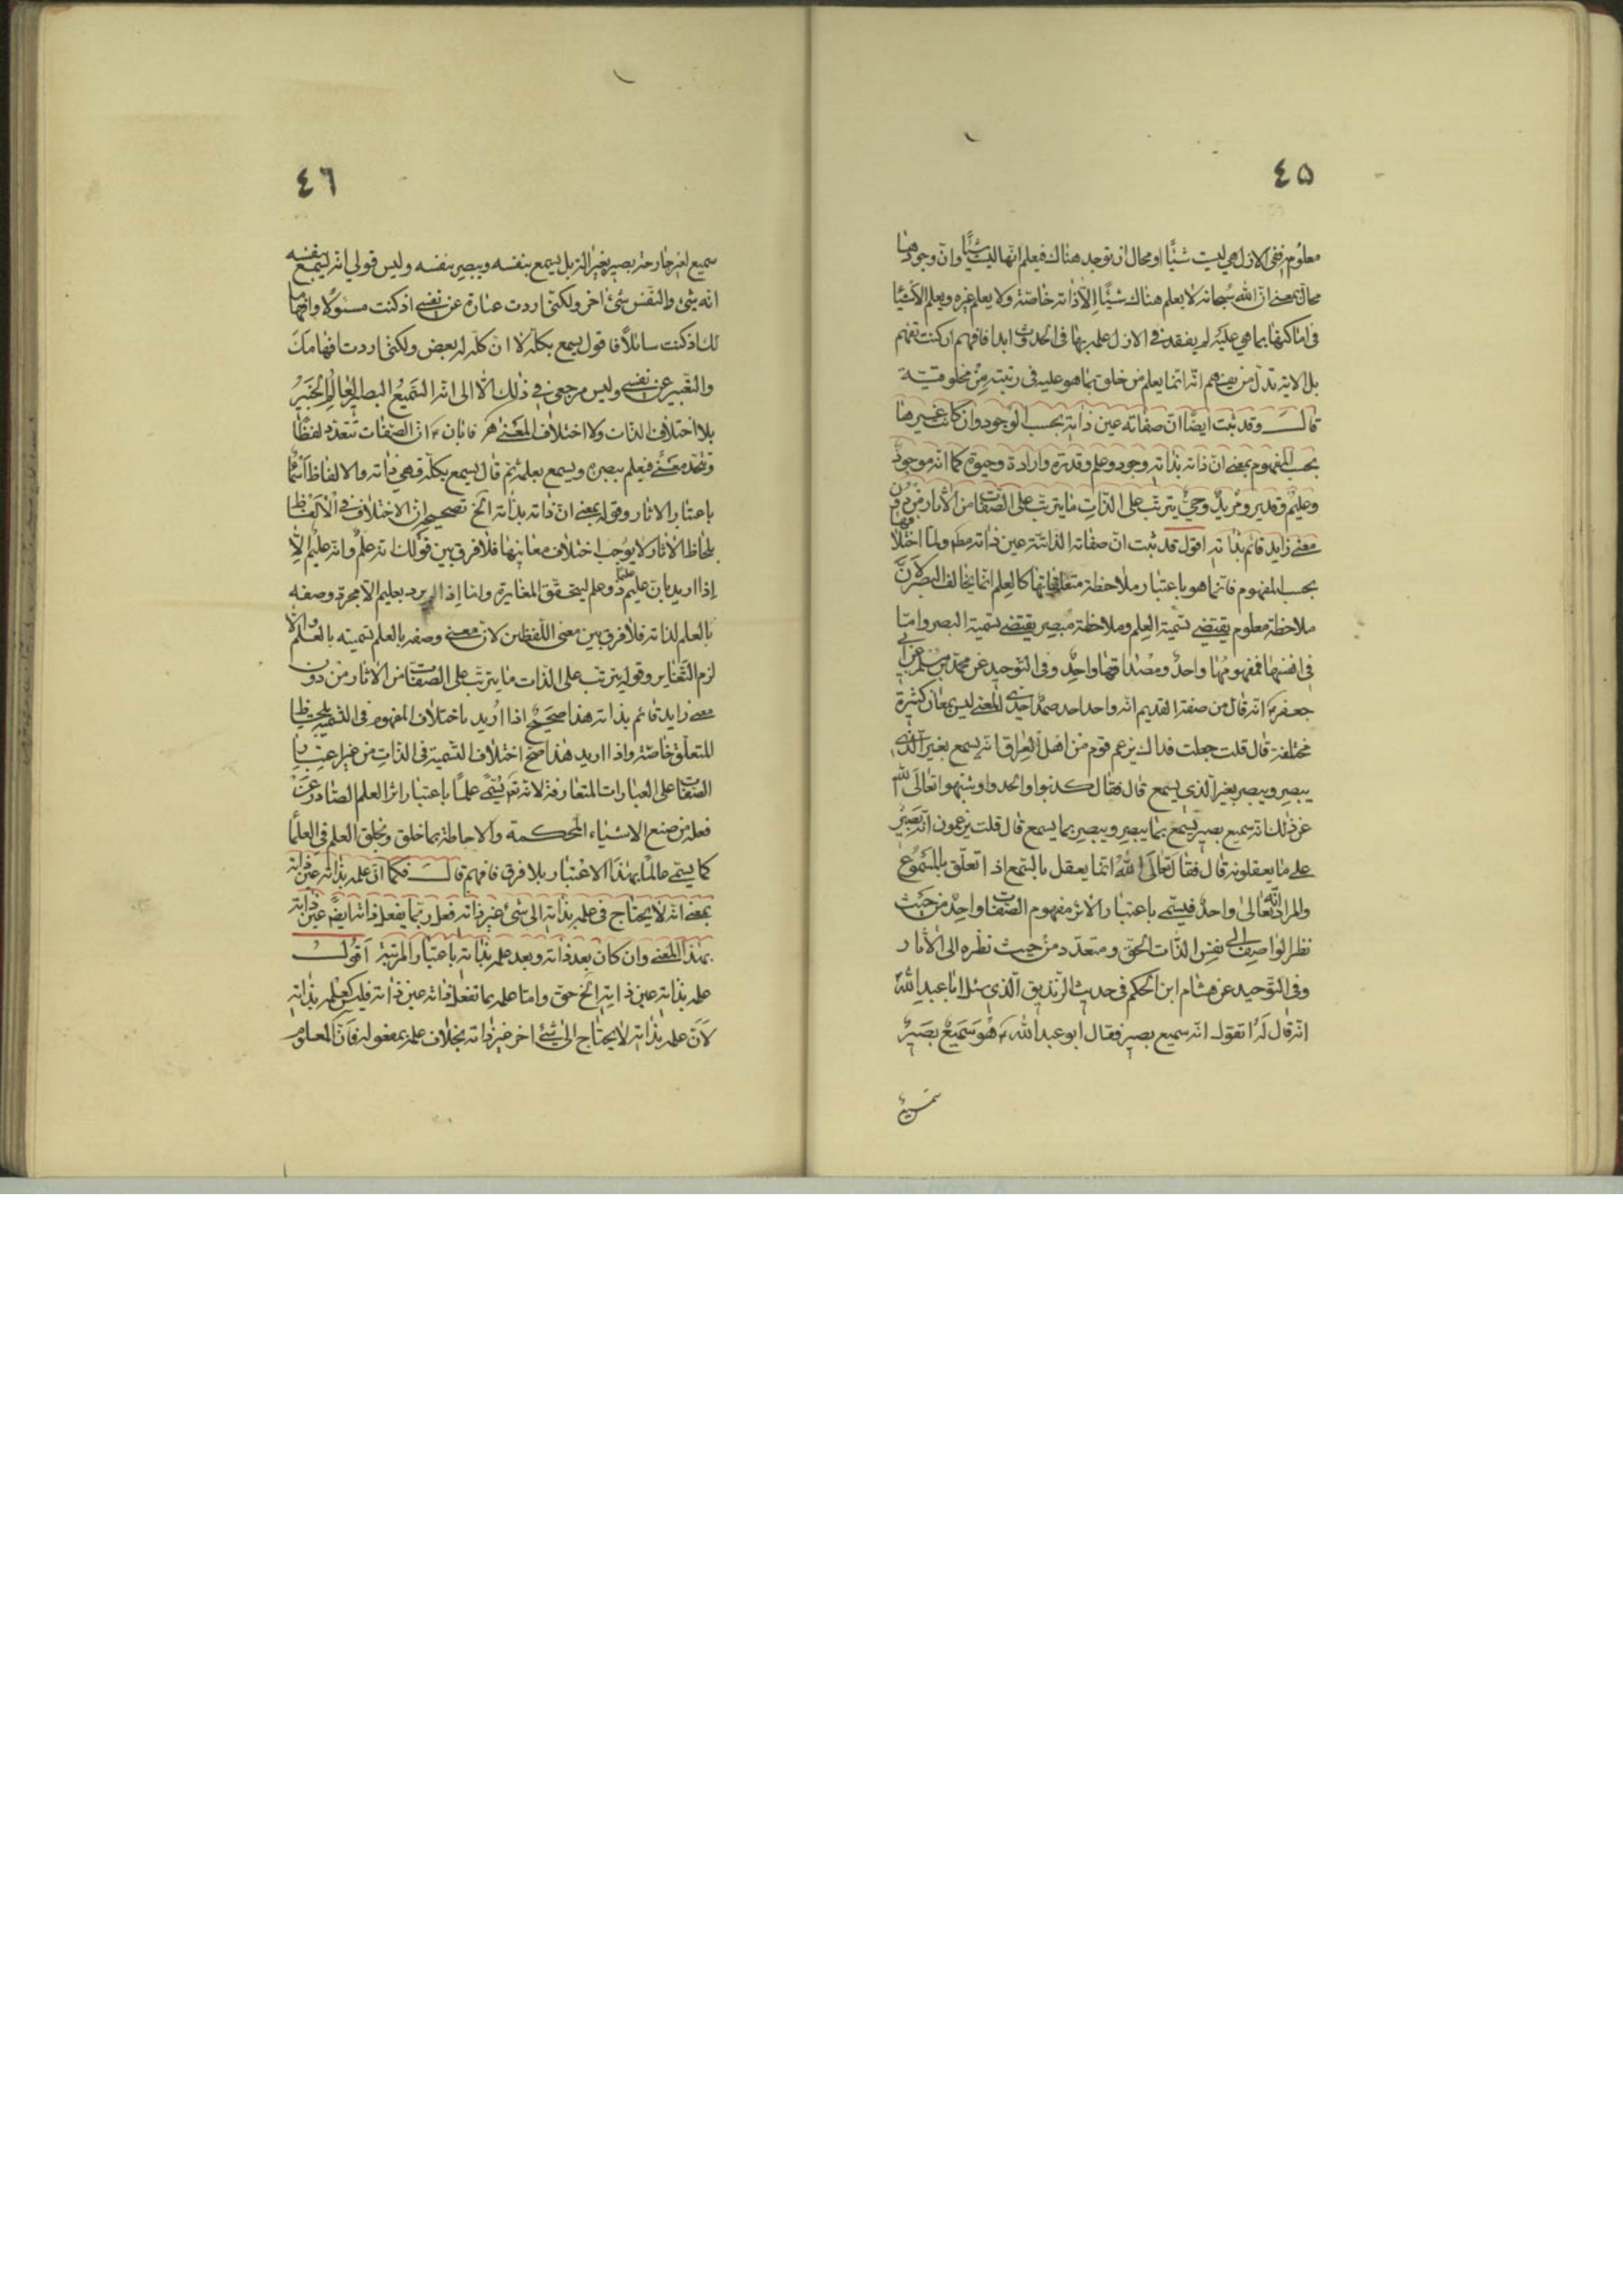 ٤٥
معلوم ففى الازل هي ليست شيئًا او محال ان توجد هناك فيعلم انّها ليست شيئًا وانّ وجودها
محال بمعنى انّ الله سُبحانه لا يعلم هناك شيئًا اِلّا ذاته خاصّة ولا يعلم غيره ويعلم الاشيا
فى اماكنها بما هي عليه لم يفقد فى الازل علمه بها فى الحدوث ابدا فافهم ان كنت تفهم
بل الاية تدلّ من يفهم انّه انّما يعلم من خلق بما هو عليه فى رتبته من مخلوقيّة
قالــ وقد ثبت ايضًا انّ صفاته عين ذاته بحسب الوجود وان كانت غيرها
بحسب المفهوم بمعنى انّ ذاته بذاته وجود وعلم وقدرة وارادة وحيوة كما انّه موجودٌ
وعليمٌ وقدير ومُريدٌ وحىٌّ يترتب على الذّات ما يترتب على الصّفات من الآثار من دون
معنى زايد قائم بذاته اقول قد ثبت انّ صفاته الذاتيّة عين ذاته مطم وامّا اختلافها
بحسب المفهوم فانّما هو باعتبار ملاحظة متعلقاتها كالعلم انّما يخالف البصر لانّ
ملاحظة معلوم يقتضى تسمية العلم وملاحظة مبصر يقتضى تسمية البصر وامّا
فى انفسها فمفهومُها واحدٌ ومصداقها واحدٌ وفى التوحيد عن محمّد بن مسلم عن ابى
جعفر ع انّه قال من صفة القديم انّه واحد احد صمد احدى المعنى ليس بمعانٍ كثيرة
مختلفة قال قلت جعلت فداك يزعم قوم من اهل العراق انّه يسمع بغير الّذى
يبصر ويبصر بغير الّذي يسمع قال فقال كذبوا والحدوا وشبّهوا تعالى الله
عن ذلك انّه سميع بصير يسمع بما يبصر ويبصر بما يسمع قال قلت يزعمون انّه بصيرٌ
على ما يعقلونه قال فقال تعالى اللهُ انّما يعقل بالسّمع اذا تعلّق بالمسموع
والمراد انّه تعالى واحدٌ فيسمّى باعتبار الاثر مفهوم الصّفات واحدٌ من حيث
نظر الواصف الى نفس الذّات الحق ومتعدّد من حيث نظره الى الآثار
وفى التّوحيد عن هشام ابن الحكم فى حديث الزنديق الّذي سئل ابا عبد الله ع
انّه قال له اتقول انّه سميع بصير فقال ابو عبد الله ع هُوَ سَمِيعٌ بَصِيرٌ
سميع
٤٦
سميع بغير جارحة بصير بغير الة بل يسمع بنفسه ويبصر بنفسه وليس قولي انّه يسمع بنفسه
انّه شئ والنّفس شئ اخر ولكنّى اردت عبارة عن نفسى اذ كنت مسئولًا وافهاما
لك اذ كنت سائلًا فاقول يسمع بكلّه لا انّ كلّه له بعض ولكنّى اردت افهامك
والتّعبير عن نفسى وليس مرجعى فى ذلك الّا الى انّه السّميع البصير العالم الخبير
بلا اختلاف الذّات ولا اختلاف المعنى هر فابان ع انّ الصّفات تتعدّد لفظًا
وتتّحد معنىً فيعلم ببصره ويسمع بعلمه ثم قال يسمع بكلّه فهى ذاته والالفاظ اسمًا
باعتبار الاثار وقوله بمعنى انّ ذاته بذاته الخ تصحيح انّ الاختلاف فى الالفاظ
بلحاظ الاثار لا يوجب اختلاف معانيها فلا فرق بين قولك انّه علمٌ وانّه عليم الّا
اذا اريد بانّ عليم ذو علم ليتحقّق المغايرة وامّا اذا لم يرد بعليم الّا مجرد وصفه
بالعلم لذاته فلا فرق بين معنى اللّفظين لانّ معنى وصفه بالعلم تسميته بالعلم والّا
لزم التّغاير وقوله يترتب على الذّات ما يترتّب على الصّفات من الاثار من دون
معنى زايد قائم بذاته هذا صحيحٌ اذا اُريد باختلاف المفهوم فى التّسمية بلحاظ
المتعلّق خاصّة واذا اريد هذا صحّ اختلاف التّسمية فى الذّات من غير اعتبار
الصّفات على العبارات المتعارفة لانّه تع يُسمّى علمًا باعتبار اثر العلم الصّادر عن
فعله من صنع الاشياء المحكمة والاحاطة بما خلق وبخلق العلم فى العلما
كما يسمّى عالمًا بهذا الاعتبار بلا فرق فافهم قالــ فكما انّ علمه بذاته عين ذاته
بمعنى انّه لا يحتاج فى علمه بذاته الى شئ غير ذاته فعلمه بما يفعل ذاته ايضًا عين ذاته
بهذا المعنى وان كان بعد ذاته وبعد علمه بذاته باعتبار المرتبة اقولــ
علمه بذاته عين ذاته الخ حق وامّا علمه بما تفعل ذاته عين ذاته فليس كعلمه بذاته
لَانّ علمه بذاته لا يحتاج الى شئ اخر غير ذاته بخلاف علمه بمفعوله فانّ المعلوم